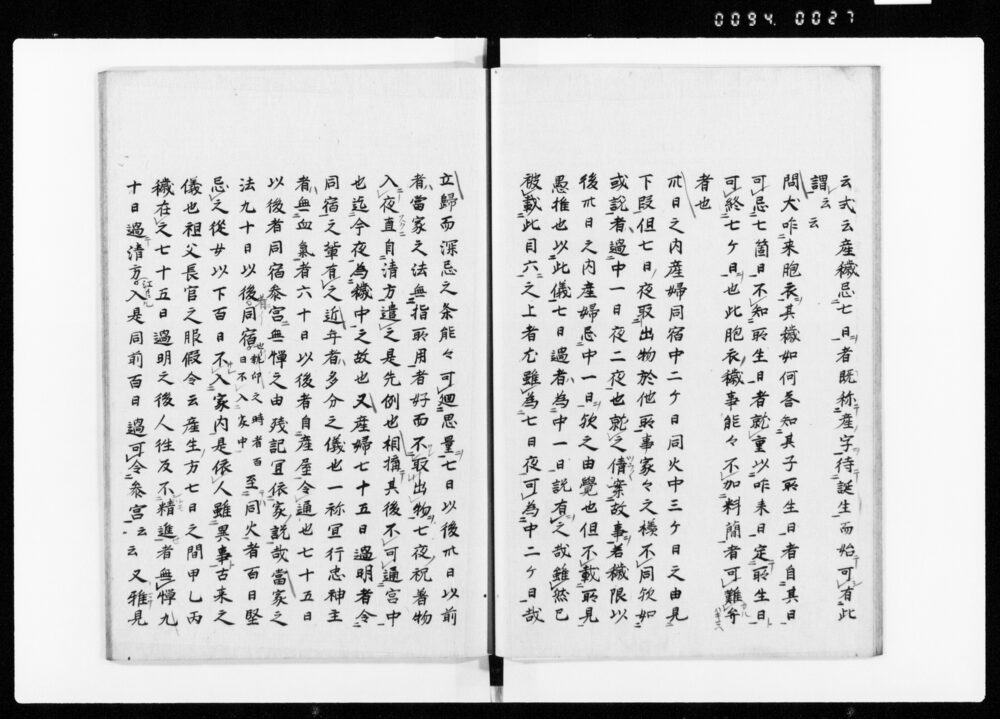 0094.0027
云式云産穢忌七日者既称産字待誕生而始可有此
謂云云
問犬咋来胞衣其穢如何答知其子所生日者自其日
可忌七箇日不知所生日者就重以咋来日定所生日
可終七ケ日也此胞衣穢事能々不加料簡者可難弁
者也
卅日之内産婦同宿中二ケ日同火中三ケ日之由見
下段但七日夜取出物於他所事家々之様不同欤如
或説者過中一日夜二夜也就之倩案故事者穢限以
後卅日之内産婦忌中一日欤之由覚也但不載所見
愚推也以此儀七日過者為中一日説有之哉雖然已
被載此目六之上者尤雖為七日夜可為中二ケ日哉
立帰而深忌之条能々可廻思量七日以後卅日以前
者當家之法無指所用者好而不取出物七夜祝着物
入夜直自清方遣之是先例也相揃其後不可通宮中
也迄今夜為穢中之故也又産婦七十五日過明者令
同宿之輩有之近年者多分之儀也一祢宜行忠神主
者無血氣者六十日以後者自産屋令通也七十五日
以後者同宿参宮無憚之由残記宜依家説哉當家之
法九十日以後同宿也執印之時者百日不入家中至同火者百日堅
忌之従女以下百日不入家内是依人雖異事古来之
儀也祖父長官之服假令云産生方七日之間甲乙丙
穢在之七十五日過明之後人性及不精進者無憚九
十日過清方入是同前百日過可令参宮云云又雅見